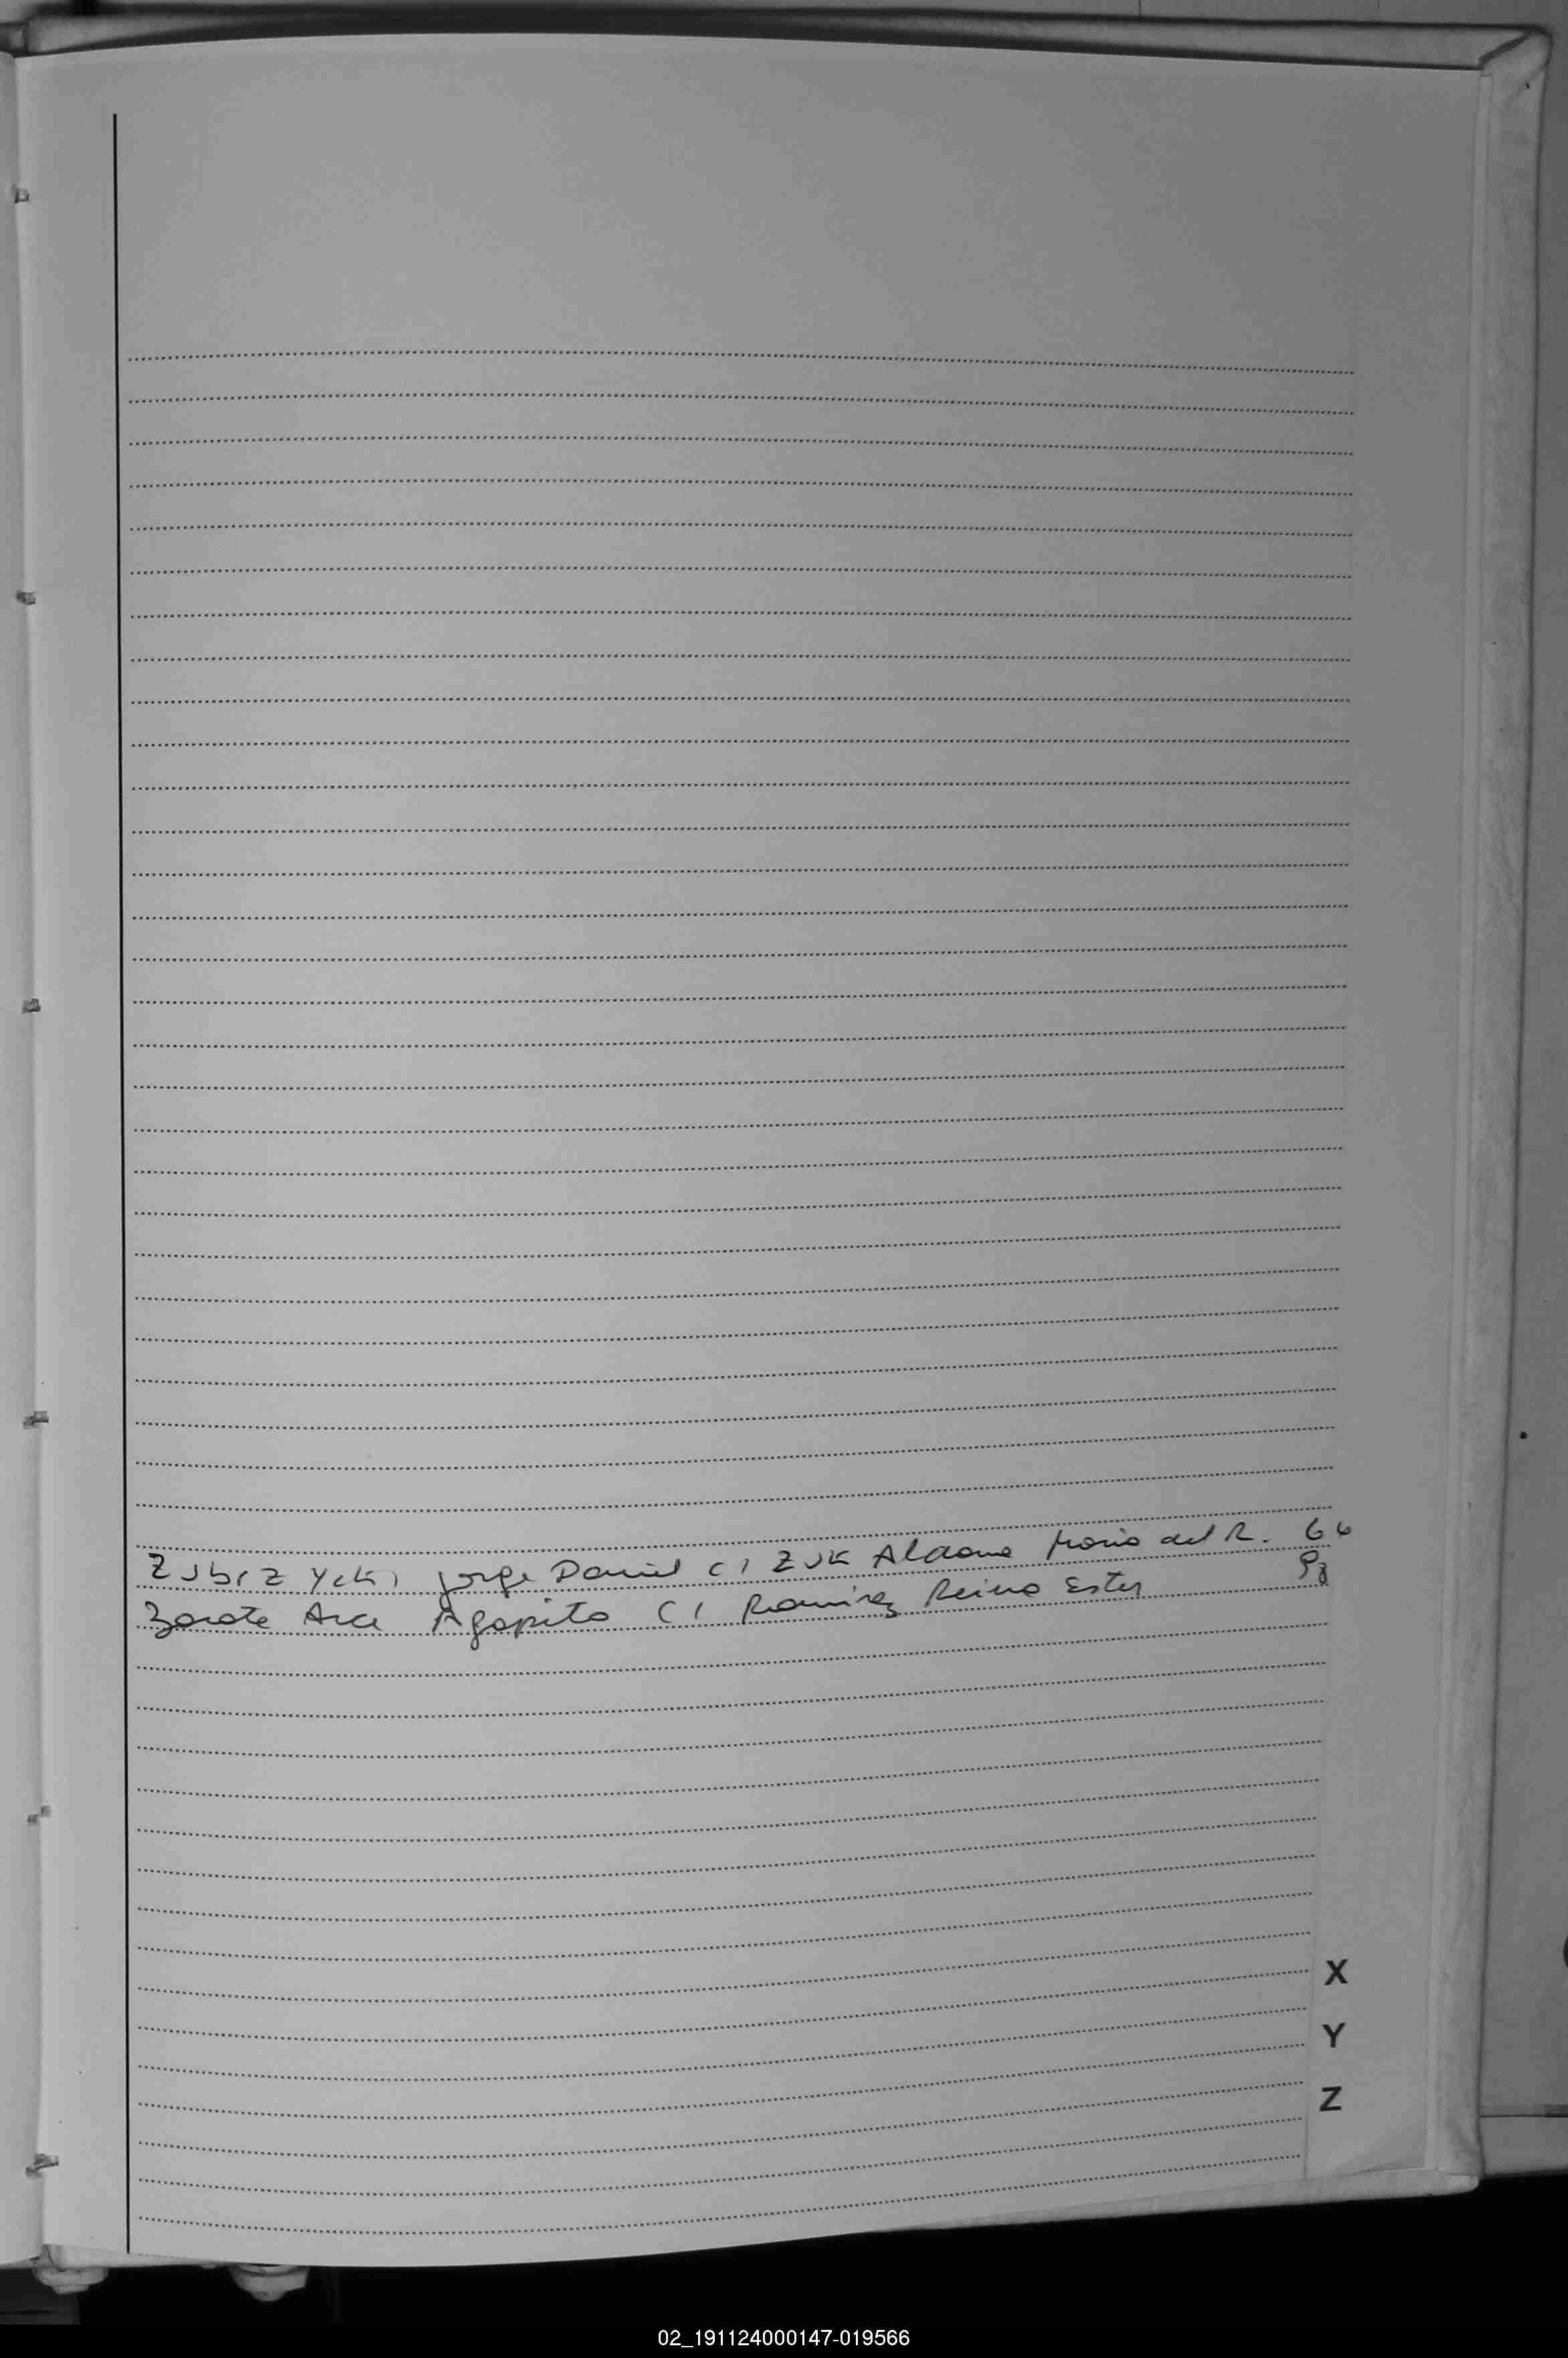 Zubrzycki Jorge Daniel C/ ZUK Aldana Maria del R. 66
Zarate Arce Agapito C/ Ramirez Reina Ester
X
Y
Z
02_191124000147-019566